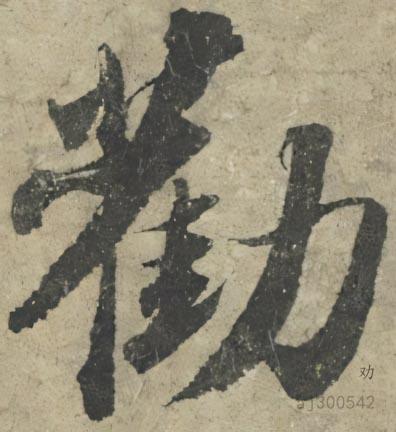 勸
劝
aj300542